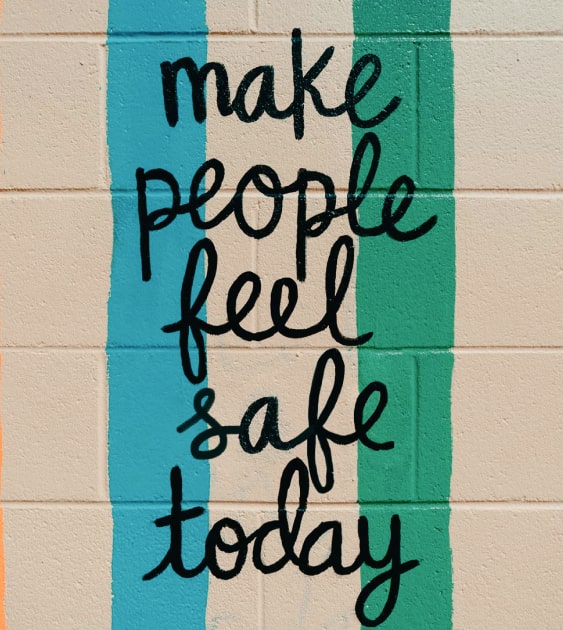 make
people
feel
safe
today